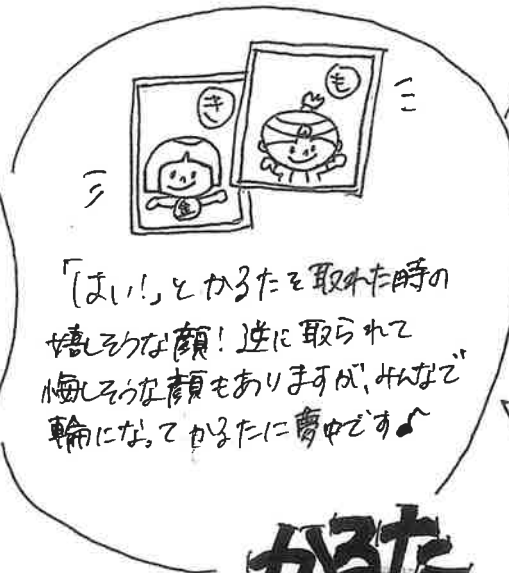 き
も
金
「はい!」とかるたを取れた時の
嬉しそうな顔!逆に取られて
悔しそうな顔もありますが、みんなで
輪になってかるたに夢中です♪
かるた